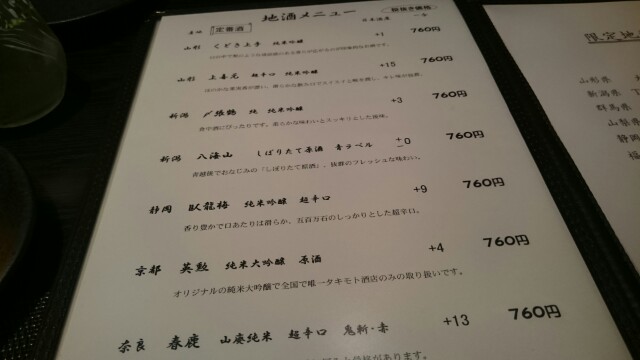 地酒メニュー
定番酒
産地
日本酒度
山形 くどき上手 純米吟醸 +1 760円
山形 上喜元 超辛口 純米吟醸 +15 760円
新潟 〆張鶴 純 純米吟醸 +3 760円
食中酒にぴったりです。柔らかな味わいとスッキリとした後味。
新潟 八海山 しぼりたて原酒 青ラベル ±0 760円
青越後でおなじみの「しぼりたて原酒」。抜群のフレッシュな味わい。
静岡 臥龍梅 純米吟醸 超辛口 +9 760円
香り豊かで口あたりは滑らか、五百万石のしっかりとした超辛口。
京都 英勲 純米大吟醸 原酒 +4 760円
オリジナルの純米大吟醸で全国で唯一タキモト酒店のみの取り扱いです。
奈良 春鹿 山廃純米 超辛口 鬼斬・赤 +13 760円
があります。
限定地
山形県
新潟県
群馬県
山梨県
静岡
福